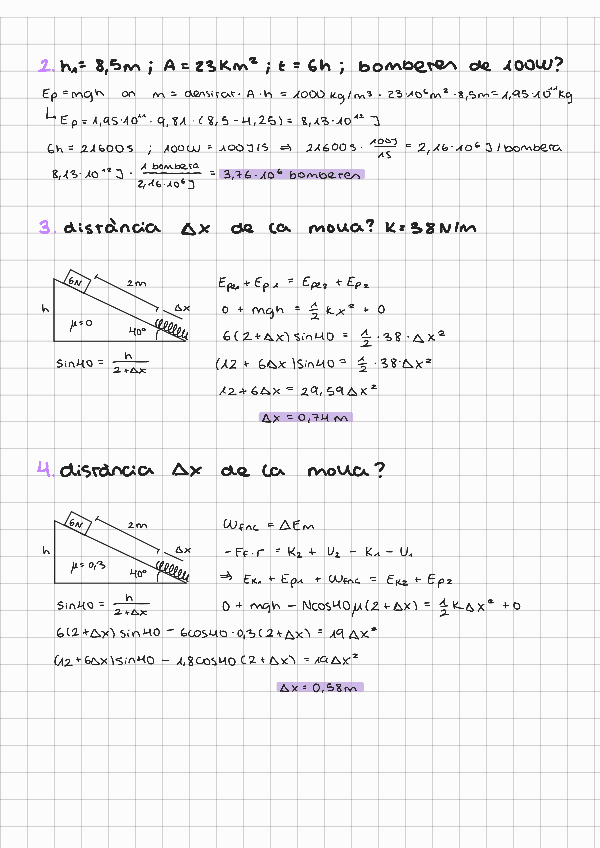 2. h₁= 8,5m ; A = 23Km² ; t = 6h ; bomberes de 100W?
Ep = mgh on m = densitat · A · h = 1000 kg/m³ · 23·10⁶m² · 8,5m = 1,95·10¹¹kg
Ep = 1,95·10¹¹ · 9,81 · (8,5 - 4,25) = 8,13·10¹² J
6h = 21600s ; 100W = 100J/s ⇒ 21600s · 100J/1s = 2,16·10⁶ J/bombera
8,13·10¹² J · 1 bombera/2,16·10⁶ J = 3,76·10⁶ bomberes
3. distància Δx de la molla? K=38N/m
6N 2m Δx
h μ=0 40°
sin40 = h/2+Δx
Epe₁ + Ep₁ = Epe₂ + Ep₂
0 + mgh = 1/2 Kx² + 0
6(2+Δx) sin40 = 1/2 · 38 · Δx²
(12 + 6Δx) sin40 = 1/2 · 38·Δx²
12 + 6Δx = 29,59Δx²
Δx = 0,74m
4. distància Δx de la molla?
6N 2m Δx
h μ=0,3 40°
sin40 = h/2+Δx
WFNC = ΔEm
-Ff·r = K₂ + U₂ - K₁ - U₁
⇒ Ek₁ + Ep₁ + WFNC = Ek₂ + Ep₂
0 + mgh - Ncos40μ(2+Δx) = 1/2 KΔx² + 0
6(2+Δx) sin40 - 6cos40·0,3(2+Δx) = 19Δx²
(12+6Δx)sin40 - 1,8cos40(2+Δx) = 19Δx²
Δx = 0,58m